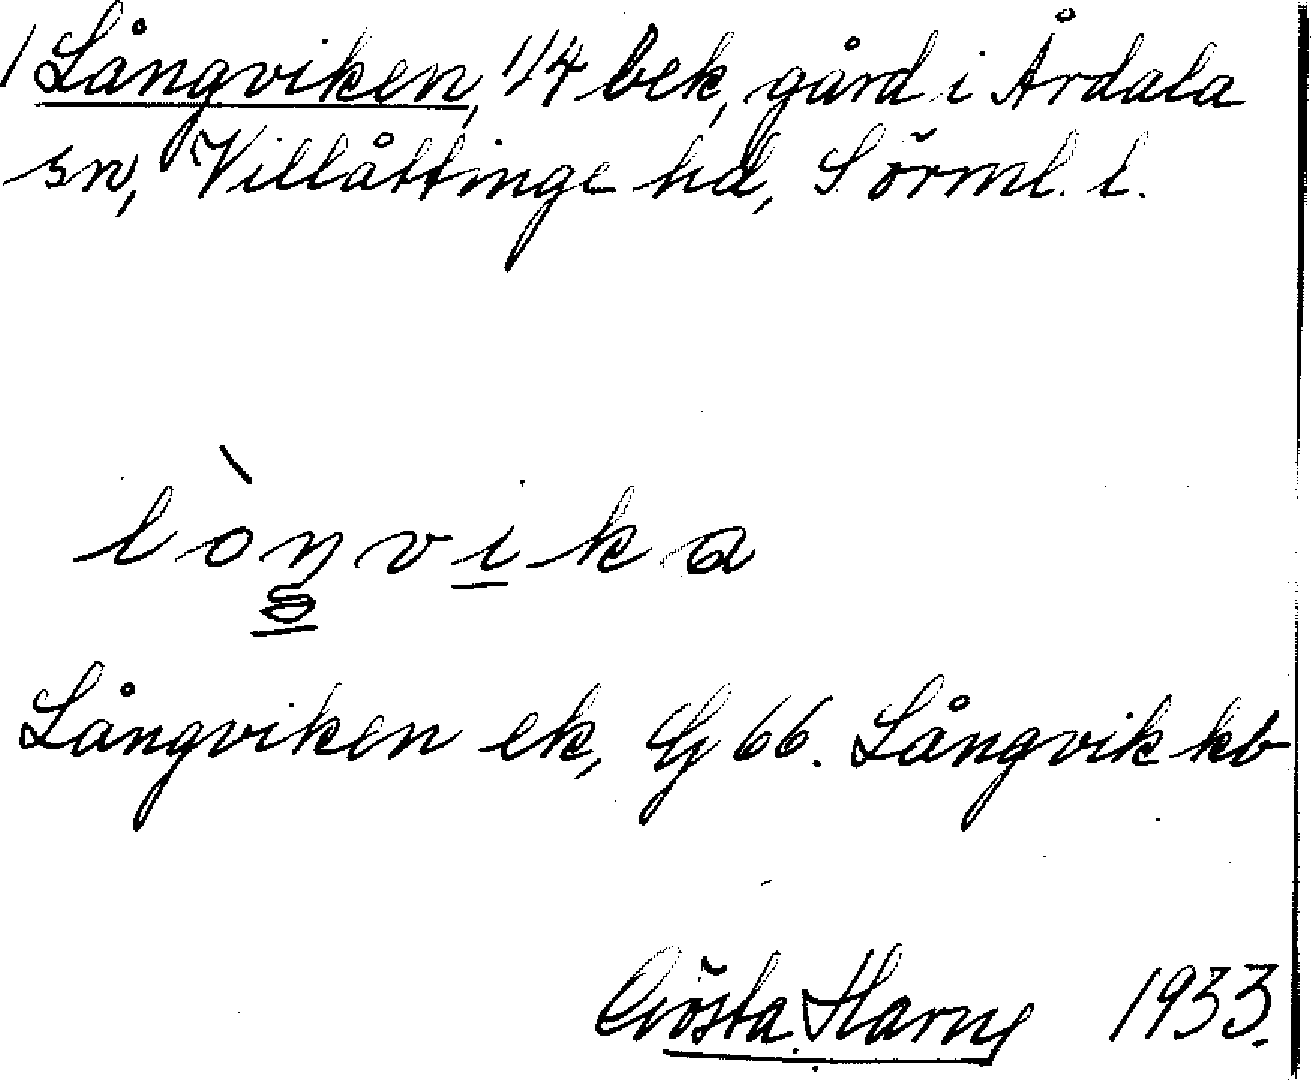 1 Långviken, 1/4 bek, gård i Årdala
sn, Villåttinge hd, Sörml. l.
lòŋvika
Långviken ek, Gj 66. Långvik kb
Gösta Harng 1933.